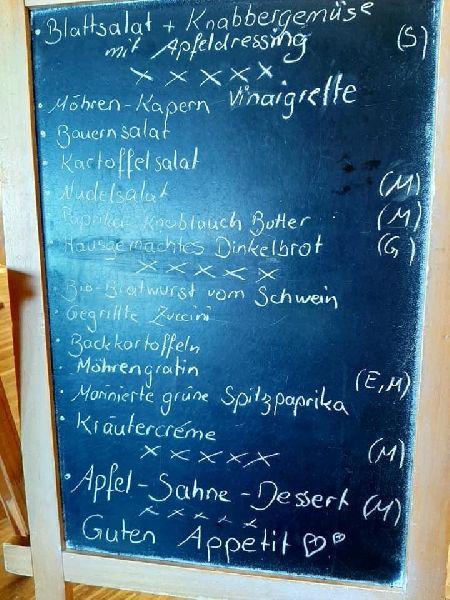 • Blattsalat + Knabbergemüse
mit Apfeldressing (S)
x x x x x
• Möhren-Kapern Vinaigrette
• Bauernsalat
• Kartoffelsalat
• Nudelsalat (M)
• Paprika-Knoblauch Butter (M)
• Hausgemachtes Dinkelbrot (G)
x x x x x
• Bio-Bratwurst vom Schwein
• Gegrillte Zuccini
• Backkartoffeln
• Möhrengratin (E, M)
• Marinierte grüne Spitzpaprika
• Kräutercréme (M)
x x x x x
• Apfel-Sahne-Dessert (M)
x x x x x
Guten Appetit ♡♡